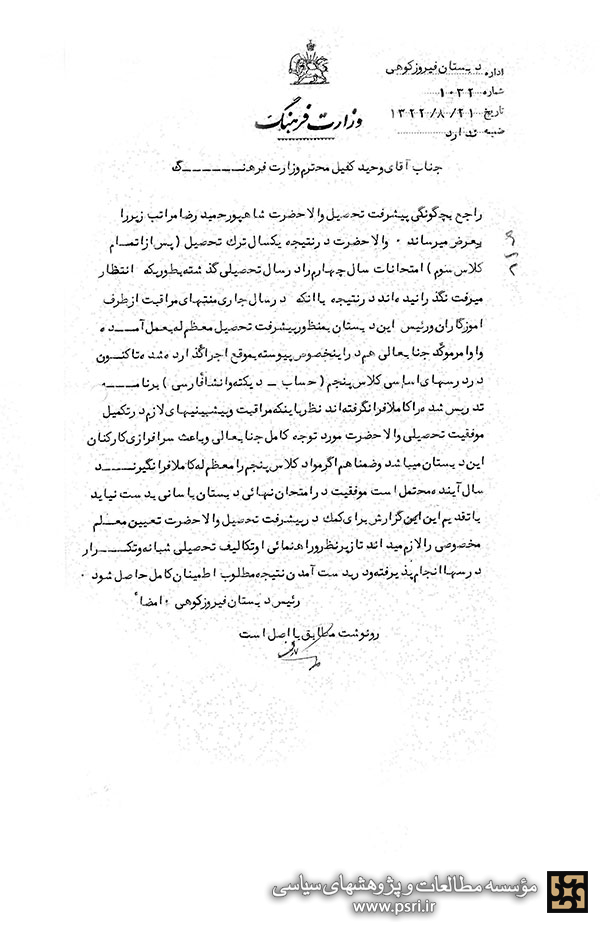 اداره دبستان فیروزکوهی
شماره ۱۰۳۲
تاریخ ۱۳۲۲/۸/۲۱
ضمیمه ندارد
وزارت فرهنگ
جناب آقای وحید کفیل محترم وزارت فرهنـــــگ
راجع بچگونگی پیشرفت تحصیل والاحضرت شاهپور حمید رضا مراتب زیر را
بعرض میرساند . والاحضرت در نتیجه یکسال ترک تحصیل ( پس از اتمام
کلاس سوم ) امتحانات سال چهارم را در سال تحصیلی گذشته بطوریکه انتظار
میرفت نگذرانیده‌اند در نتیجه با آنکه در سال جاری منتهای مراقبت از طرف
اموزگاران و رئیس این دبستان بمنظور پیشرفت تحصیل معظم له بعمل آمـــده
و اوامر موکد جنابعالی هم در اینخصوص پیوسته بموقع اجرا گذارده شده تاکنون
در درسهای اساسی کلاس پنجم ( حساب ــ دیکته و انشا فارسی ) برنامـــه
تدریس شده را کاملا فرا نگرفته‌اند نظر باینکه مراقبت و پیشبینیهای لازم در تکمیل
موفقیت تحصیلی والاحضرت مورد توجه کامل جنابعالی و باعث سرافرازی کارکنان
این دبستان میباشد و ضمنا هم اگر مواد کلاس پنجم را معظم له کاملا فرا نگیرنـــد
سال آینده محتمل است موفقیت در امتحان نهائی دبستان باسانی بدست نیاید
با تقدیم این گزارش برای کمک در پیشرفت تحصیل والاحضرت تعیین معـــلم
مخصوصی را لازم میداند تا زیر نظر و راهنمائی او تکالیف تحصیلی شبانه و تکـــرار
درسها انجام پذیرفته و در بدست آمدن نتیجه مطلوب اطمینان کامل حاصل شود .
رئیس دبستان فیروزکوهی . امضاء
رونوشت مطابق با اصل است
مؤسسه مطالعات و پژوهشهای سیاسی
www.psri.ir